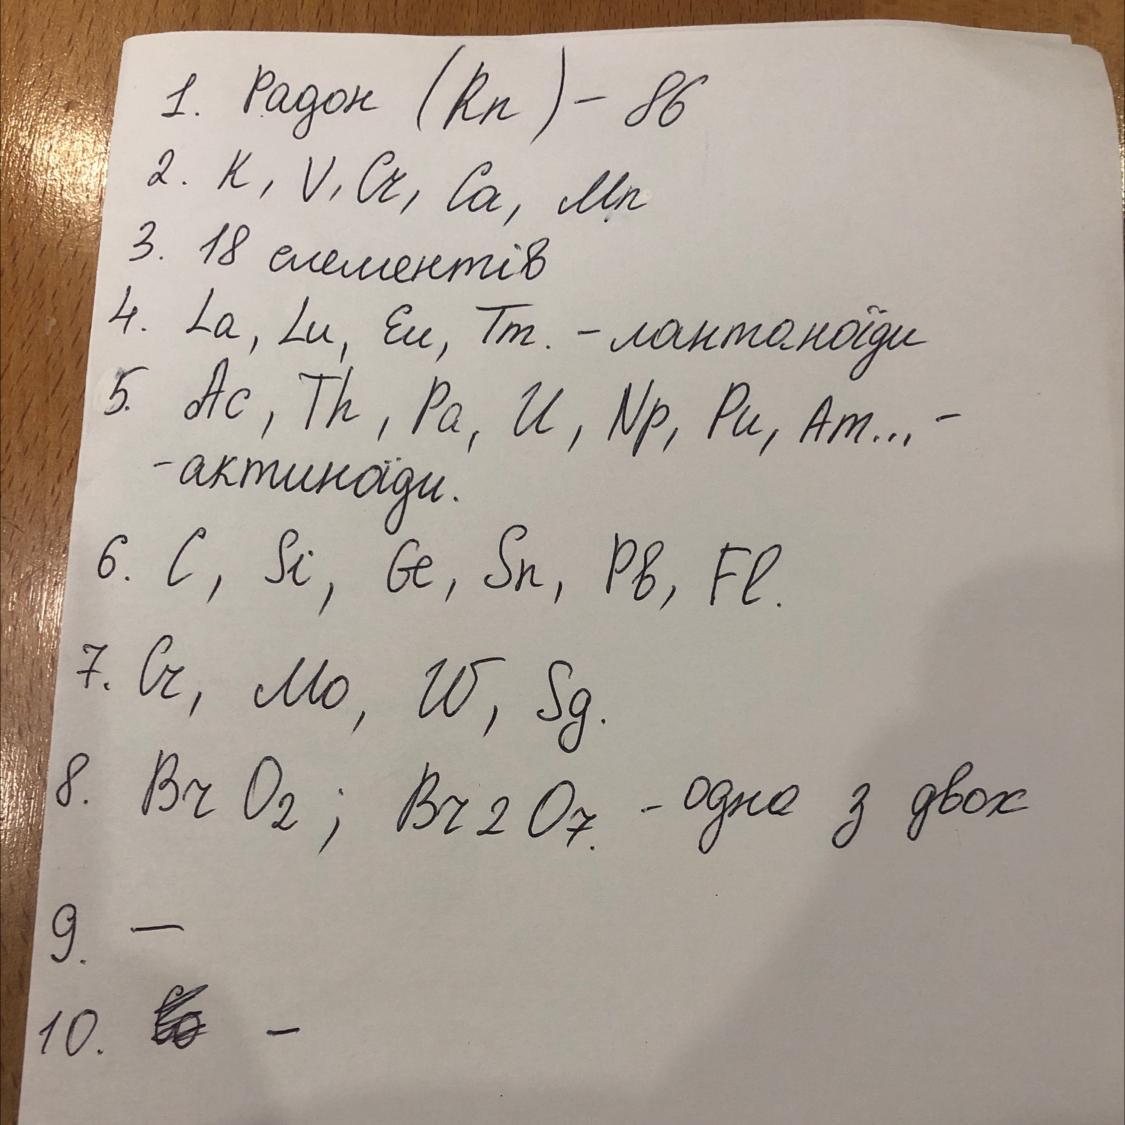 1. Радон (Rn) - 86
2. K, V, Cr, Ca, Mn
3. 18 елементів
4. La, Lu, Eu, Tm. - лантаноїди
5. Ac, Th, Pa, U, Np, Pu, Am... -
- актиноїди.
6. C, Si, Ge, Sn, Pb, Fl.
7. Cr, Mo, W, Sg.
8. BrO2; Br2O7. - одна з двох
9. —
10. -